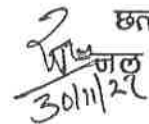 छत
जलू
30/11/22